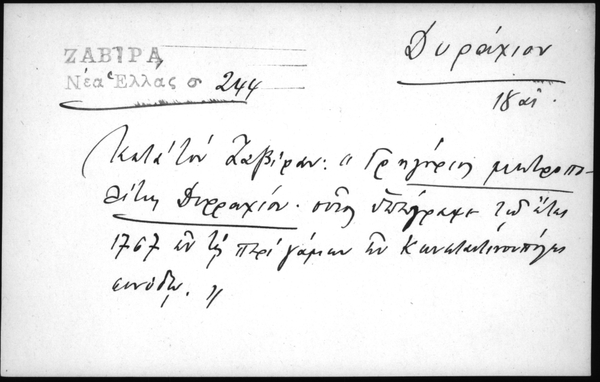 ΖΑΒΙΡΑ,
Νέα Ἑλλὰς σ 244
Δυράχιον
18 αἰ.
Κατὰ τὸν Ζαβίραν: "Γρηγόριος μητροπο-
λίτης Δυρραχίου. οὗτος ὑπέγραψε τῷ ἔτει
1767 ἐν τῇ περὶ γάμων ἐν Κωνσταντινουπόλει
συνόδῳ."